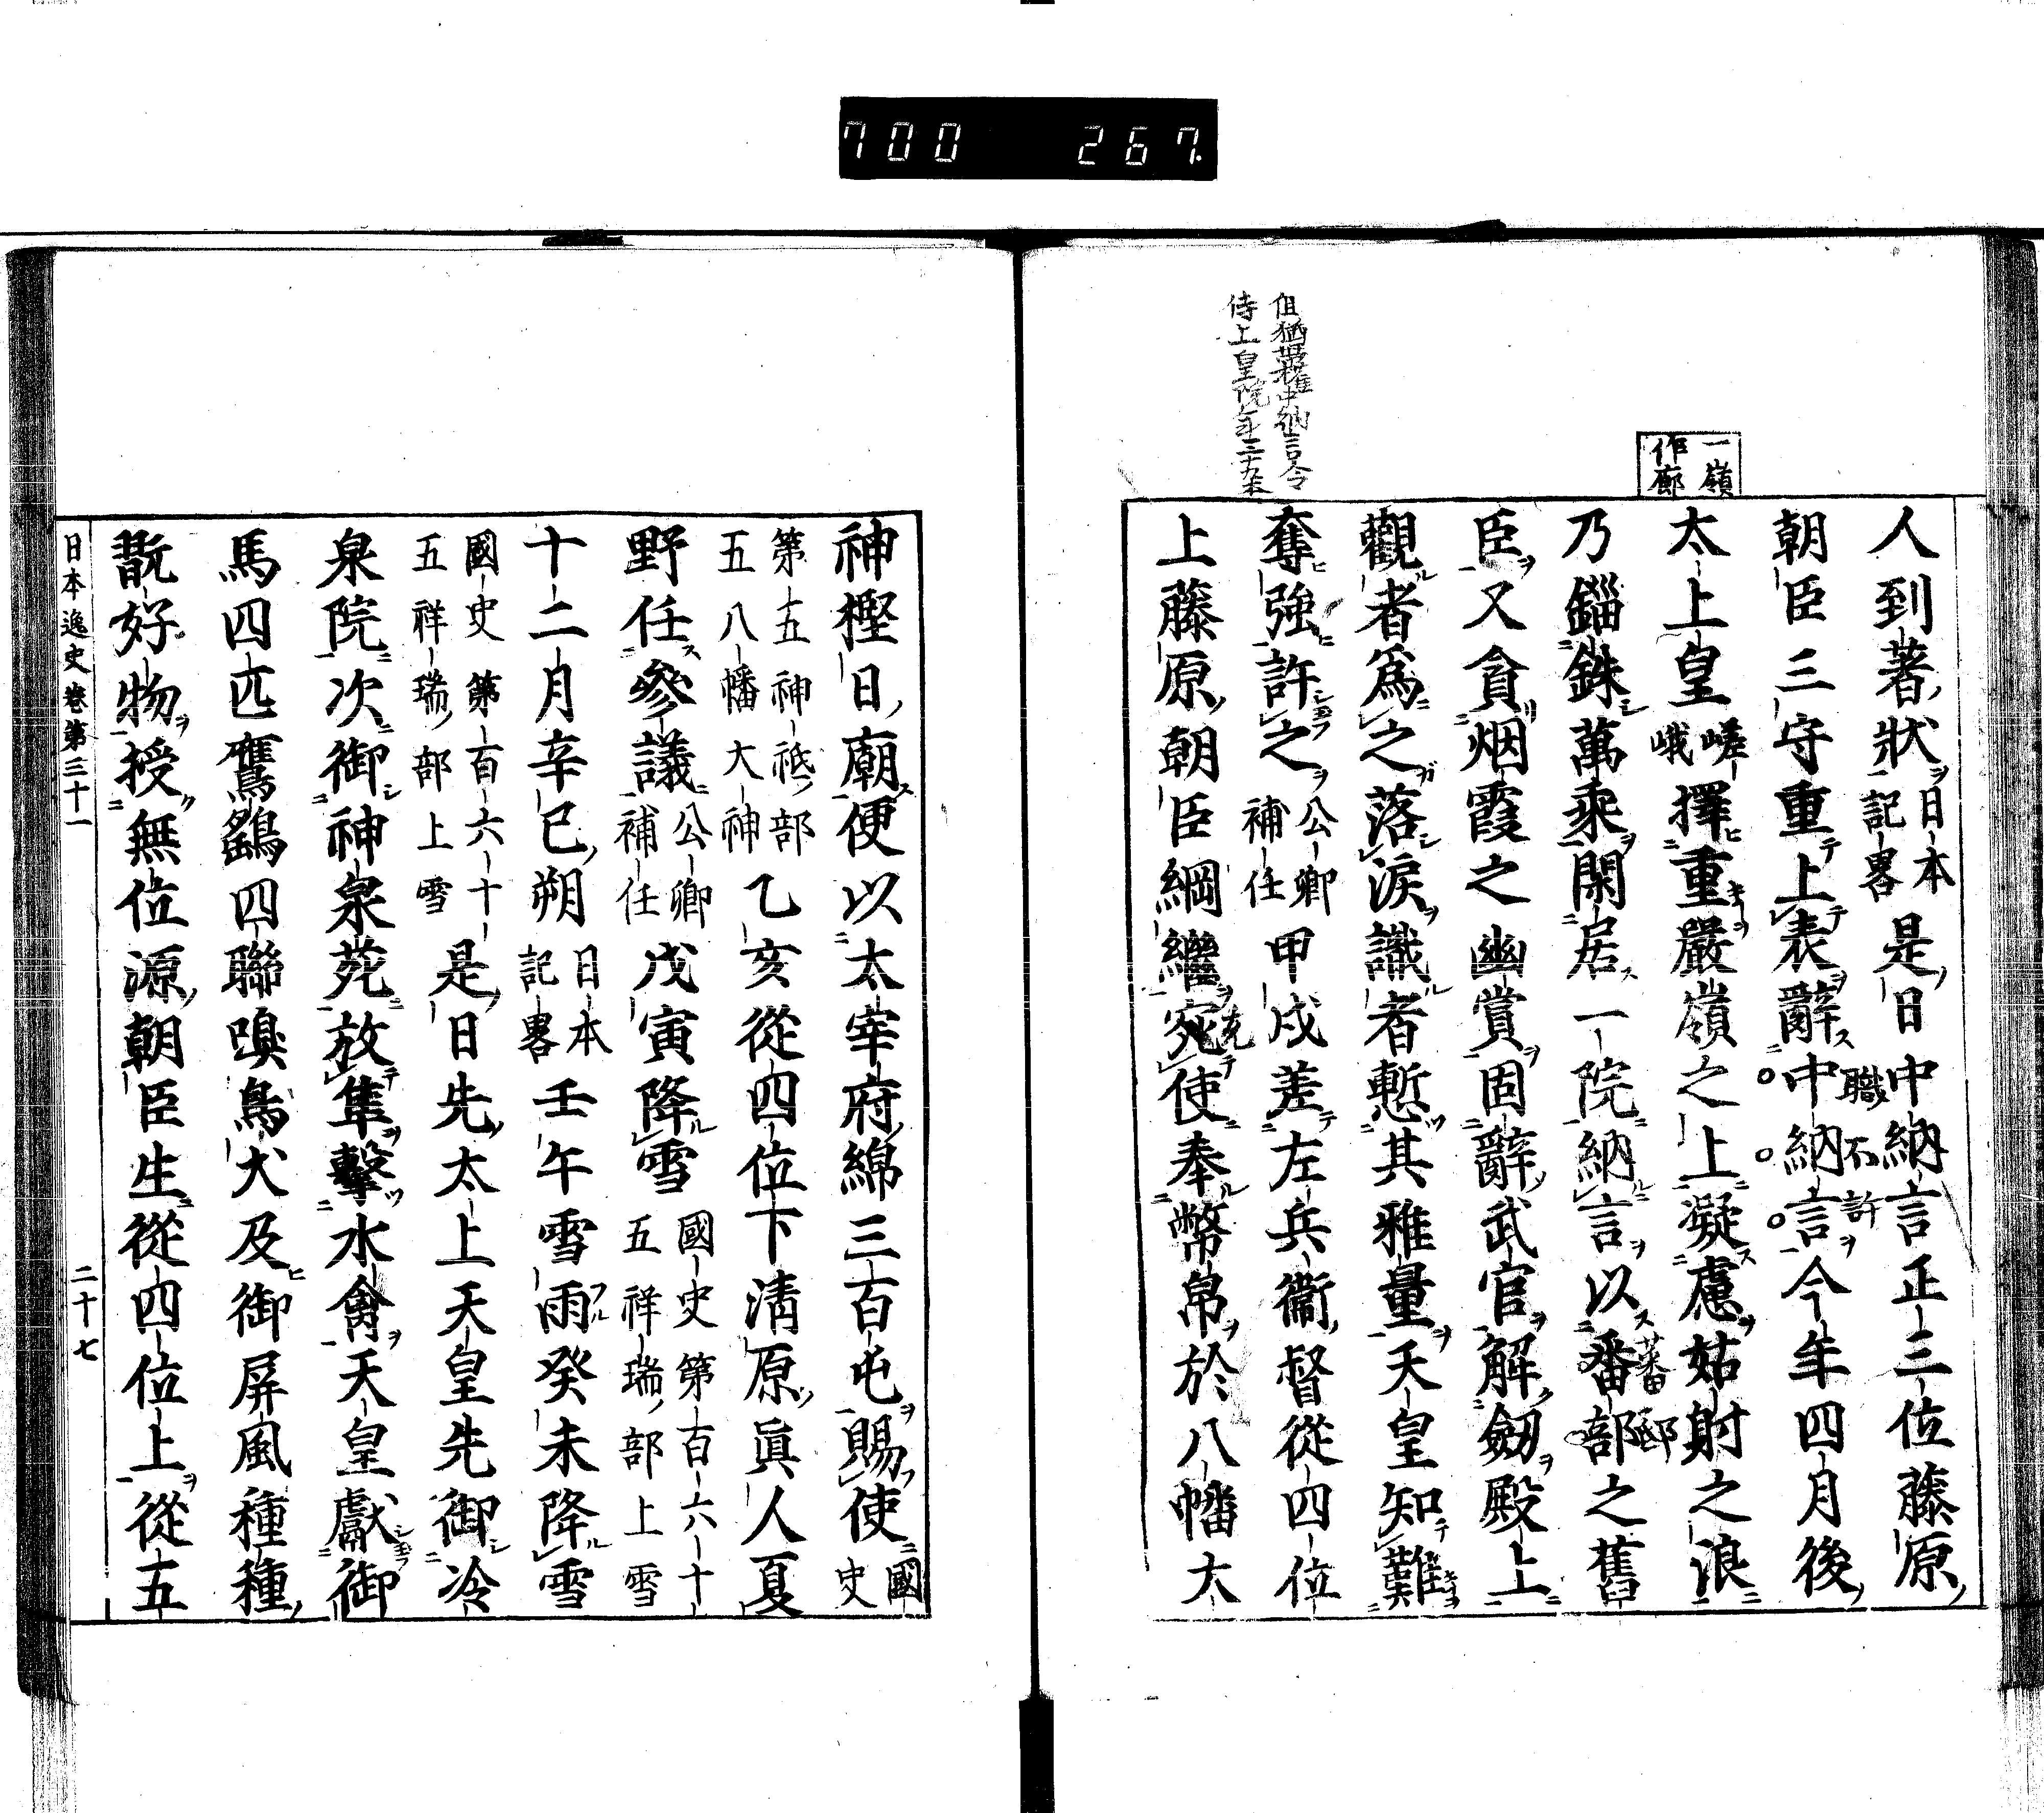 700 267
但猶帶權中納言令
侍上皇院年三十九本
一嶺
作廊
人到著狀日本記畧是日中納言正三位藤原
職不許
朝臣三守重上表辭中納言今年四月後
太上皇嵯峨擇重嚴嶺之上凝慮姑射之浪
乃錙銖萬乘閑居一院納言以番部之舊
蕃邸
臣又貪烟霞之幽賞固辭武官解劔殿上
觀者爲之落淚識者慙其雅量天皇知難
奪強許之公卿補任甲戌差左兵衞督從四位
上藤原朝臣綱繼宛使奉幣帛於八幡大
充
神樫日廟便以太宰府綿三百屯賜使國史
第五神祇部五八幡大神乙亥從四位下淸原眞人夏
野任參議公卿補任戊寅降雪國史第百六十五祥瑞部上雪
十二月辛巳朔日本記畧壬午雪雨癸未降雪
國史第百六十五祥瑞部上雪是日先太上天皇先御冷
泉院次御神泉苑放隼擊水禽天皇獻御
馬四匹鷹鷂四聯嗅鳥犬及御屏風種種
翫好物授無位源朝臣生從四位上從五
日本逸史卷第三十一 二十七